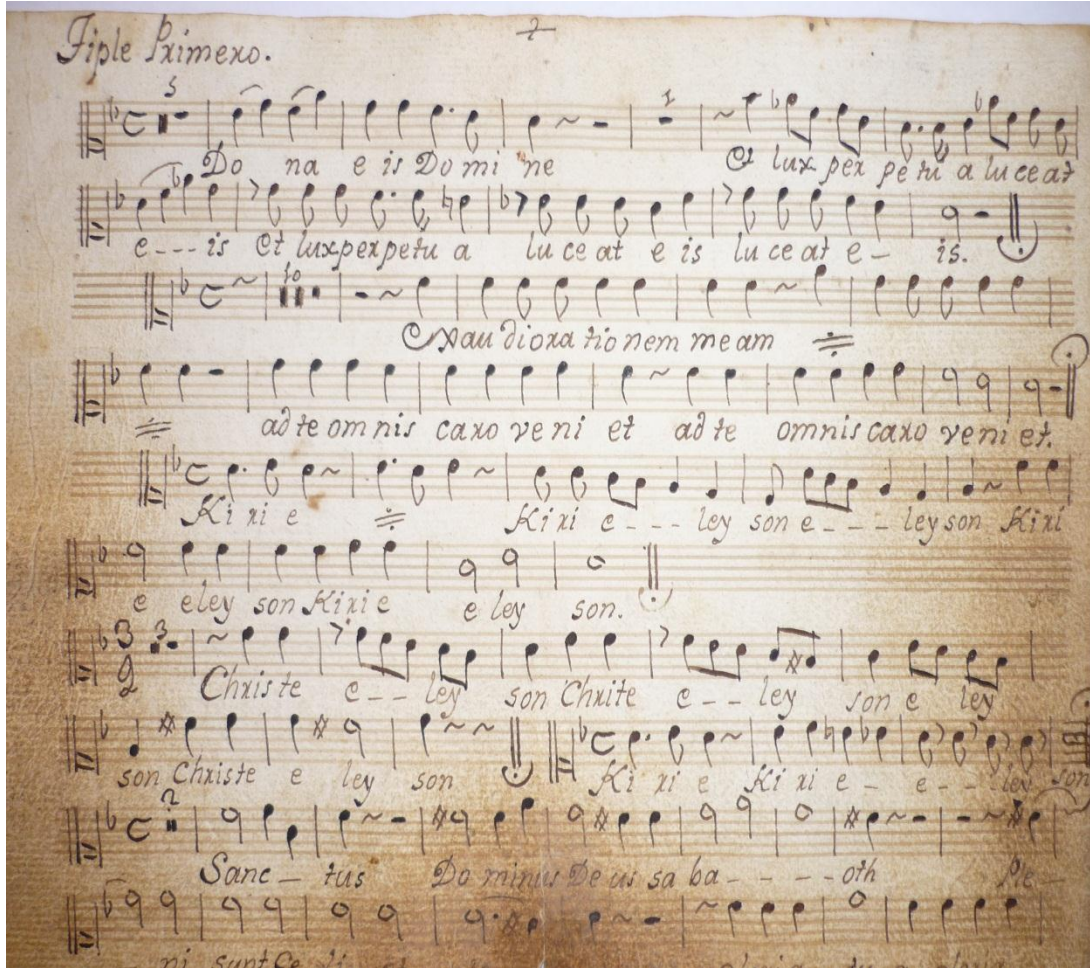 Tiple Primero.
Do na e is Do mi ne Et lux per pe tu a lu ce at
e---is et lux perpetu a lu ce at e is lu ce at e- is.
Exau di ora tio nem me am
ad te om nis caro ve ni et ad te omnis caro ve ni et.
Ki ri e Ki ri e---ley son e---ley son Kiri
e eley son Kirie e ley son.
3 2 3
Chris te e--ley son Chrite e--ley son e ley
son Christe e ley son Ki ri e Ki ri e- e---ley son
2
Sanc- tus Do minus De us sa ba----oth Ple-
ni sunt Ce li